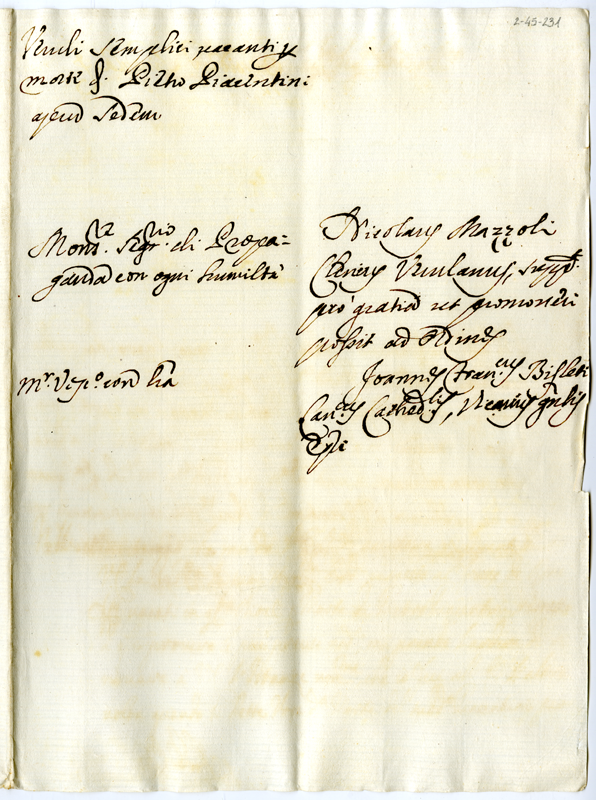 2-45-231
Veruli semplici vacanti p
morte q. Pietro Piacentini
apud Sedem
Mons.r Segr.rio di Propa=
ganda con ogni humiltà
Mr. Vesc.o con l'ra
Nicolaus Mazzoli
Clericus Verulanus, supp.t
pro gratia ut promoveri
possit ad Ordines
Joannes Fran.cus Bisleti
Can.cus Cathed.lis, Vicarius g'nlis